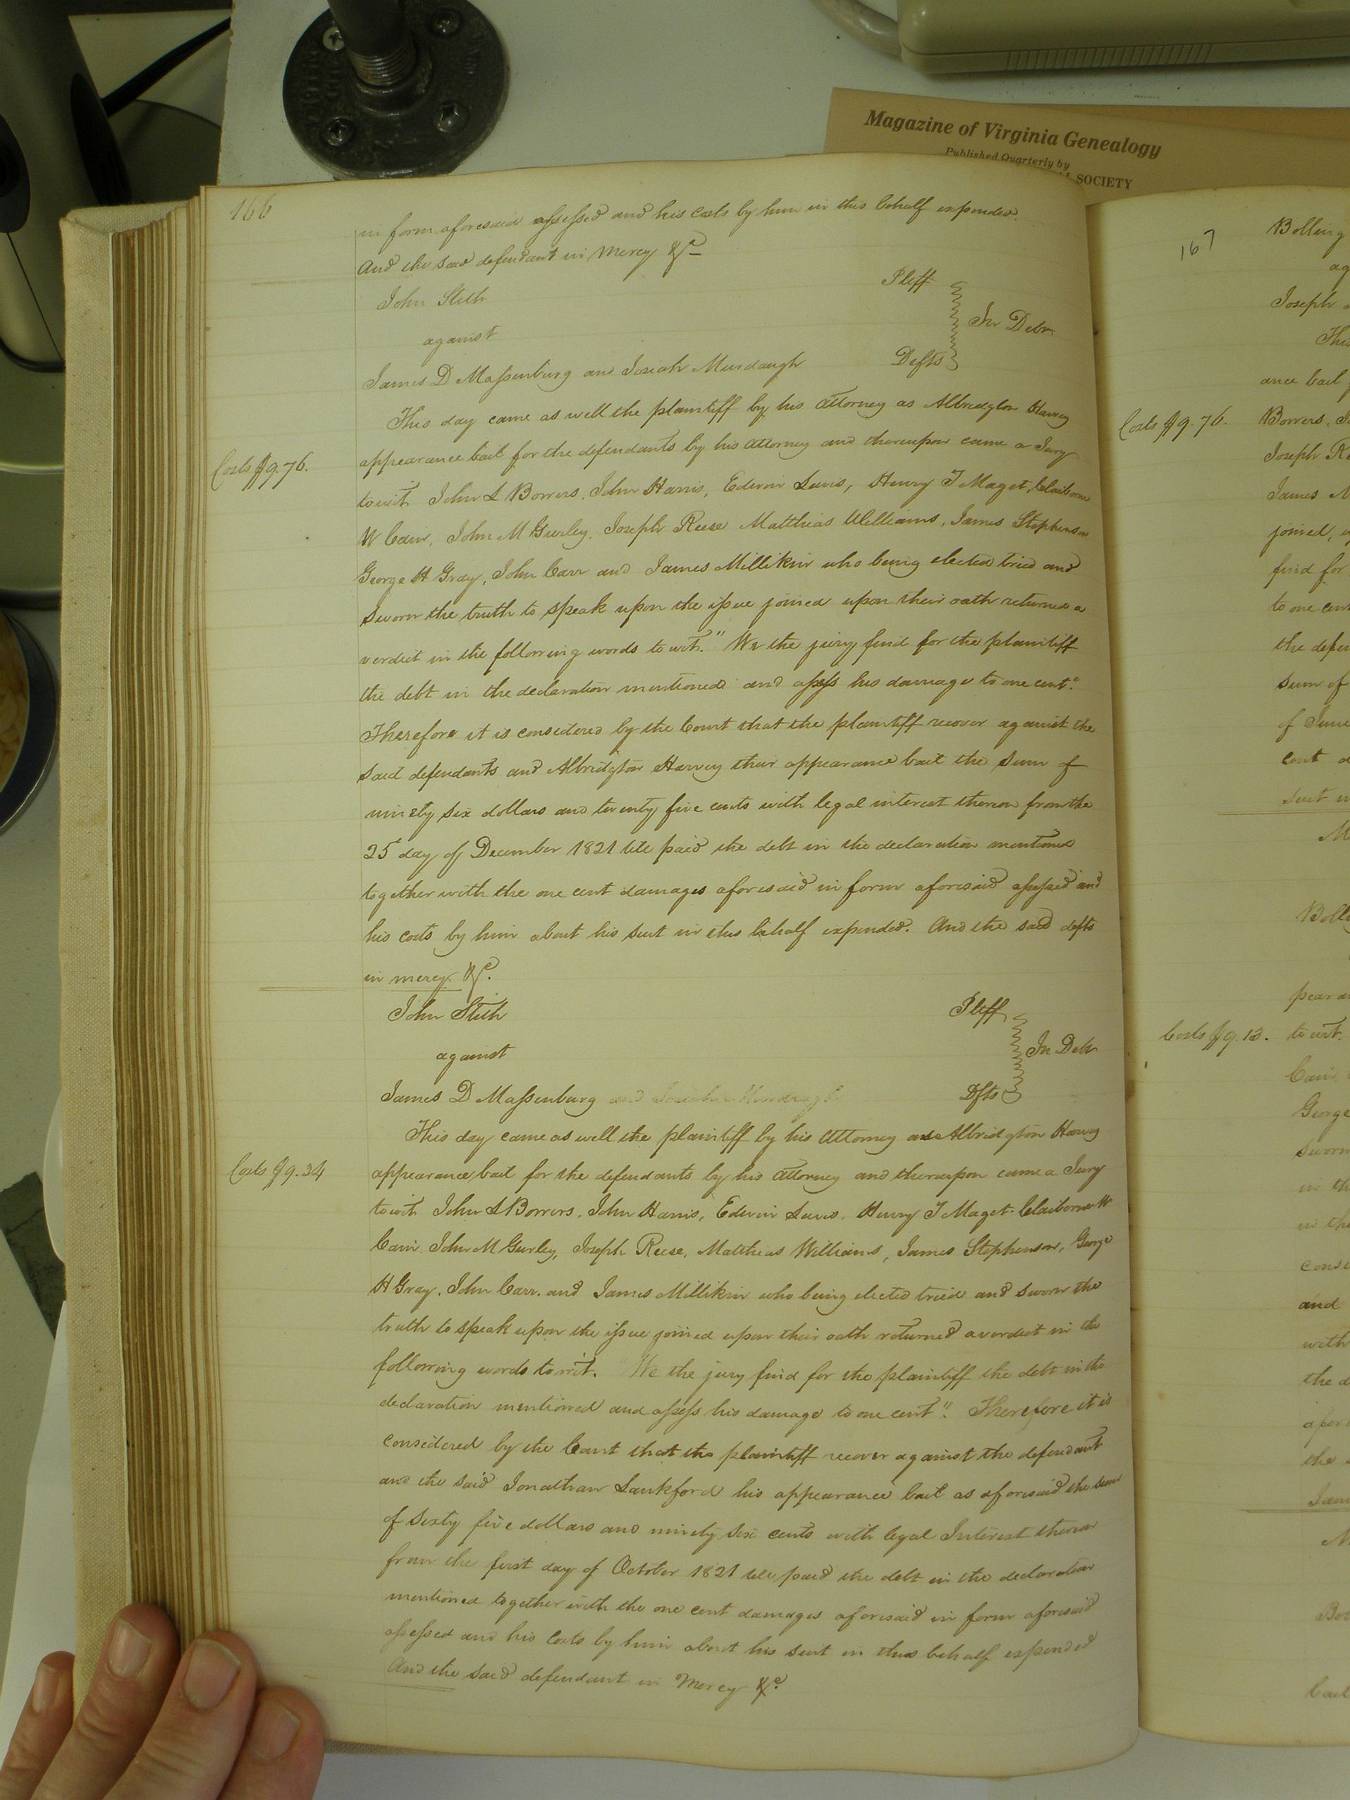 Magazine of Virginia Genealogy
Published Quarterly by
SOCIETY
166
in form aforesaid assessed and his costs by him in this behalf expended.
And the said defendant in mercy &c
John Stith Pltff
against In Debt
James D Massenburg and Josiah Murdaugh Defts
This day came as well the plaintiff by his attorney as Albridgton Harvey
Costs $9.76.
appearance bail for the defendants by his attorney and thereupon came a Jury
towit John S Borrers, John Harris, Edwin Lewis, Henry T Maget, Claiborne
W Cain, John M Gurley, Joseph Reese Matthias Williams, James Stephenson
George H Gray, John Carr and James Millikin who being elected tried and
sworn the truth to speak upon the issue joined upon their oath returned a
verdict in the following words to wit. "We the jury find for the plaintiff
the debt in the declaration mentioned and assess his damage to one cent".
Therefore it is considered by the Court that the plaintiff recover against the
said defendants and Albridgton Harvey their appearance bail the sum of
ninety six dollars and twenty five cents with legal interest thereon from the
25 day of December 1821 till paid the debt in the declaration mentioned
together with the one cent damages aforesaid in form aforesaid assessed and
his costs by him about his suit in this behalf expended. And the said defts
in mercy &c.
John Stith Pltff
against In Debt
James D Massenburg and Josiah Murdaugh Dfts
This day came as well the plaintiff by his Attorney as Albridgton Harvey
Costs $9.34
appearance bail for the defendants by his attorney and thereupon came a Jury
towit John S Borrers, John Harris, Edwin Lewis, Henry T Maget, Claiborne W
Cain, John M Gurley, Joseph Reese, Matthias Williams, James Stephenson, George
H Gray, John Carr, and James Millikin who being elected tried and sworn the
truth to speak upon the issue joined upon their oath returned a verdict in the
following words to wit. "We the jury find for the plaintiff the debt in the
declaration mentioned and assess his damage to one cent". Therefore it is
considered by the Court that the plaintiff recover against the defendant
and the said Jonathan Lankford his appearance bail as aforesaid the sum
of sixty five dollars and ninety six cents with legal Interest thereon
from the first day of October 1821 till paid the debt in the declaration
mentioned together with the one cent damages aforesaid in form aforesaid
assessed and his Costs by him about his suit in this behalf expended
And the said defendant in Mercy &c.
167
Bolling
Joseph
ance bail
Costs $9.76.
Borrers, J
Joseph Re
James M
joined,
find for
to one cent
the defen
sum of
of June
cent
suit
Boll
pearan
Costs $9.13.
to wit.
Cain
George
sworn
in th
in the
consi
and
with
the d
afor
the
Jam
Bol
bail